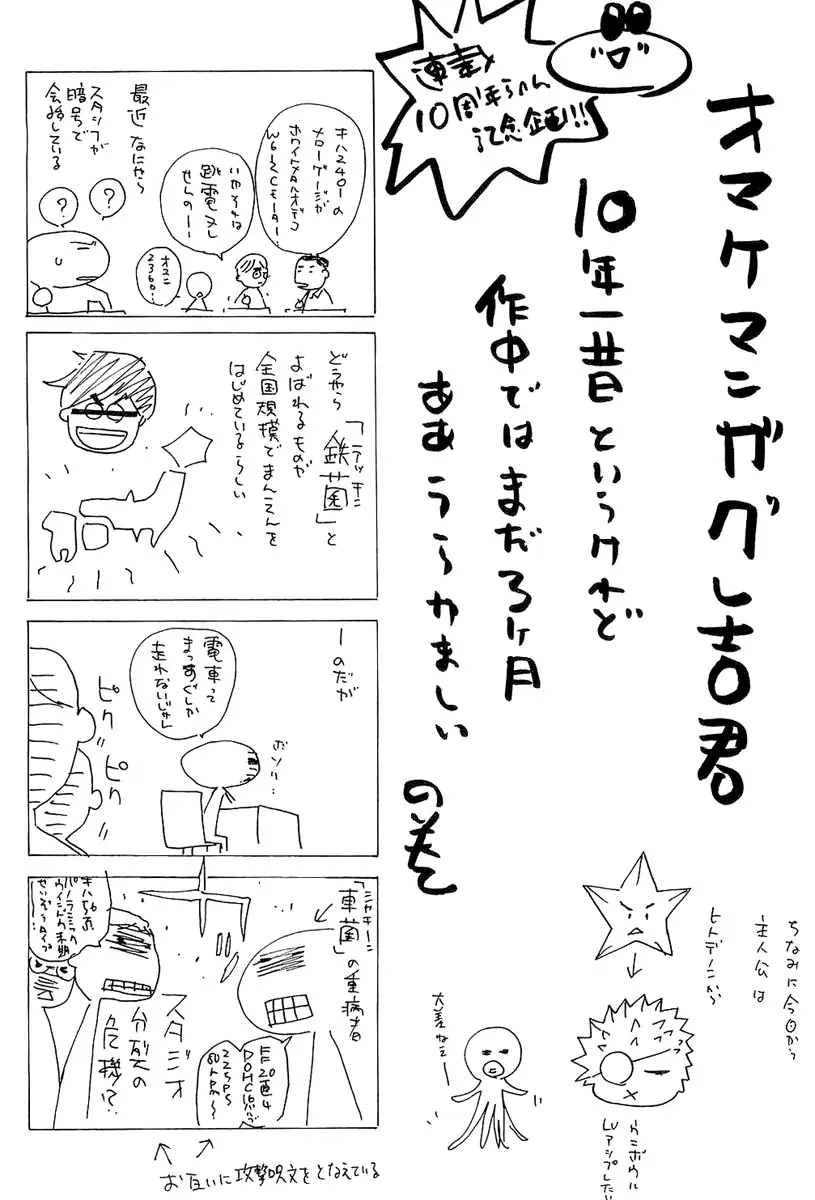 オマケマンガグレ吉君
連載
10周年らいん
記念企画!!
10年一昔というけれど
作中ではまだ3ヶ月
ああうらやましい
の巻
最近なにやら
スタッフが
暗号で
会話している
キハ2401の
メローゲージが
いやそれは
オヌニ
2360…
?
?
どうやら
「鉄菌」と
テッキン
よばれるものが
全国規模でまんえんを
はじめているらしい
ーのだが
電車って
まっすぐしか
走れないじゃん
ボソリ…
ピク
ピク
「車菌」の重病者
シャキーン
キハ56直
パノラミック
ウインドウ末期
せいぞうタイプ
スタジオ
分裂の
危機!?
直4
DOHC16バルブ
225PS
お互いに攻撃呪文をとなえている
ちなみに今日から
主人公は
ヒトデーニから
ウニボウに
LVアップしたい
大差ねえー